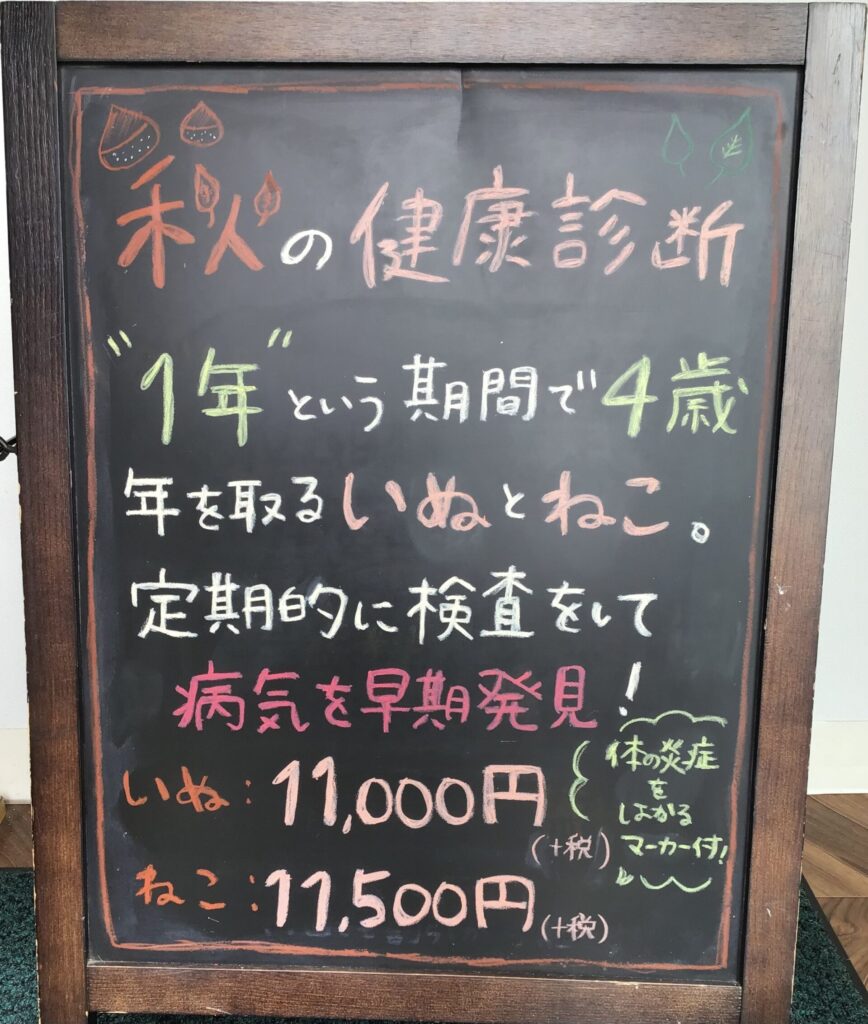 秋の健康診断
"1年"という期間で4歳
年を取るいぬとねこ。
定期的に検査をして
病気を早期発見!
いぬ:11,000円
(+税)
ねこ:11,500円
(+税)
体の炎症
を
はかる
マーカー付!